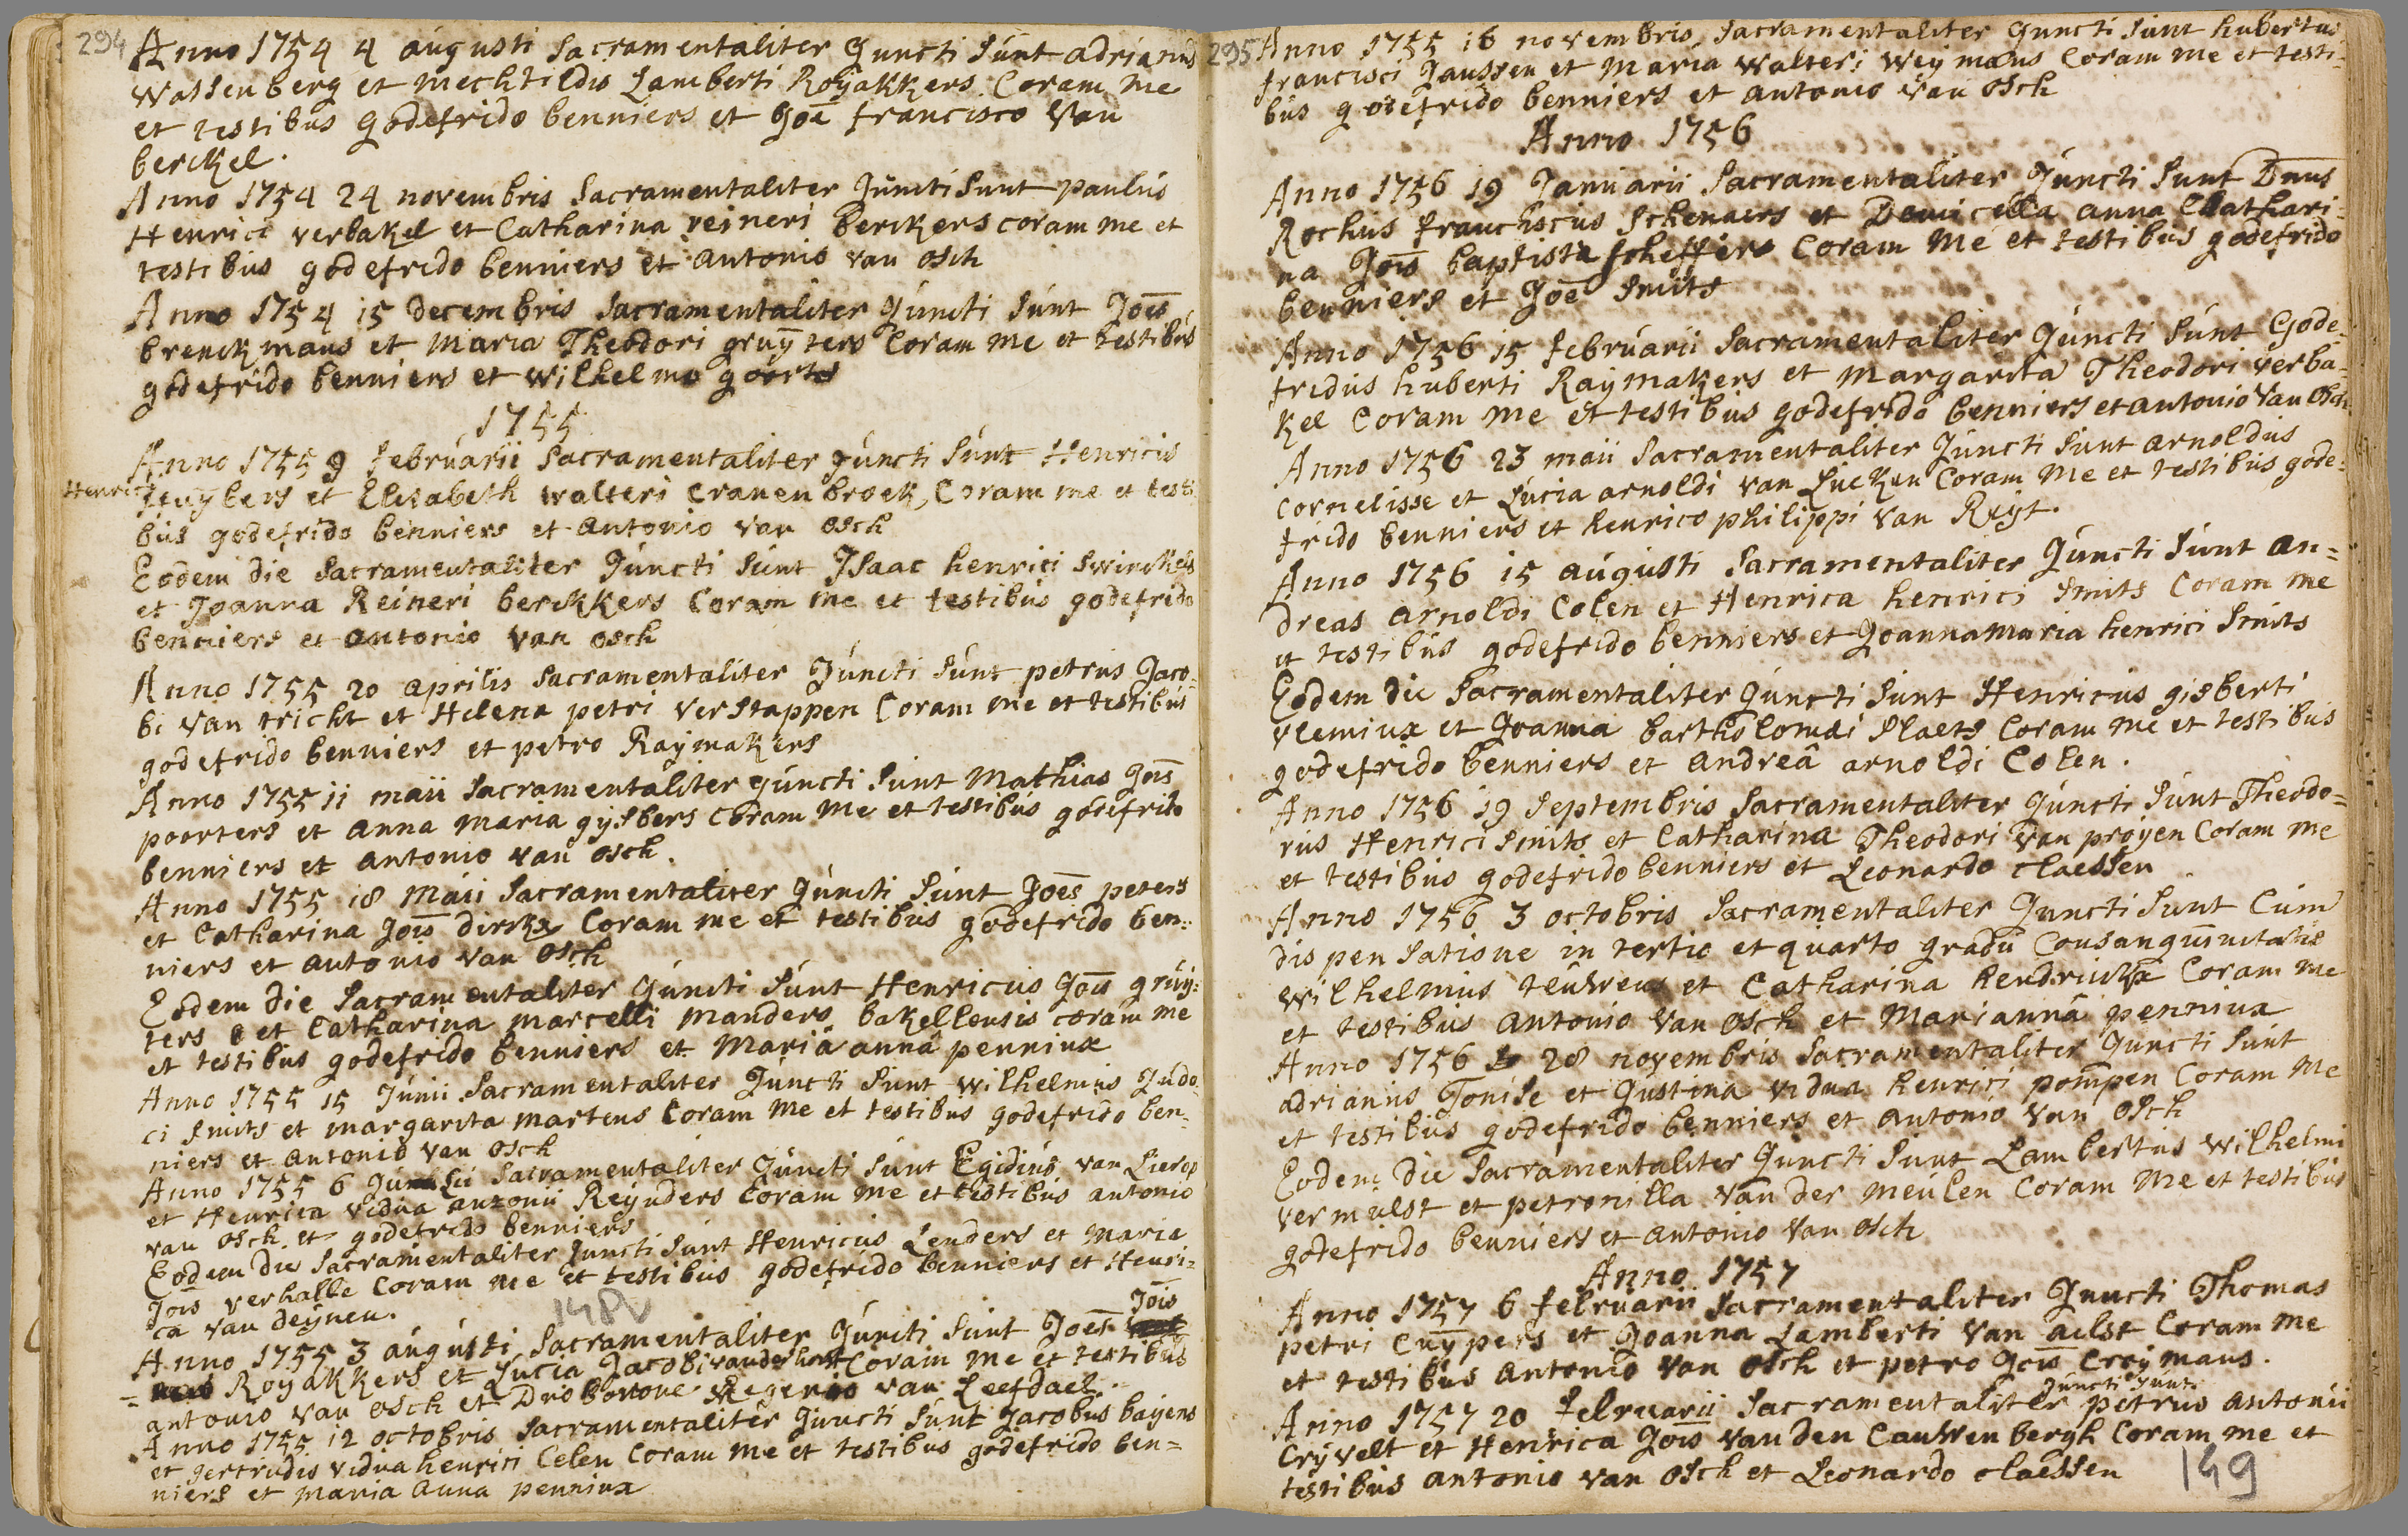 294
Anno 1754 4 augusti Sacramentaliter Juncti Sunt adrianus
Wassenberg et mechtildis Lamberti Roijakkers Coram me
et testibus Godefrido benniers et Joe francisco Van
berckel.
Anno 1754 24 novembris Sacramentaliter Juncti Sunt paulus
Henrici verbakel et Catharina reineri berckers coram me et
testibus godefrido benniers et antonio van Osch
Anno 1754 15 decembris Sacramentaliter Juncti Sunt Joes
brenckmans et Maria Theodori gruijters Coram me et testibus
godefrido benniers et wilhelmo goorts
1755
Anno 1755 9 februarii Sacramentaliter Juncti Sunt Henricus
Henrici
et Elisabeth walteri Cranenbroek, Coram me et testi
bus godefrido benniers et antonio van Osch
Eodem die Sacramentaliter Juncti Sunt Isaac henrici Swinckels
et Joanna Reineri berckkers Coram me et testibus godefrido
benniers et antonio van Osch
Anno 1755 20 aprilis Sacramentaliter Juncti Sunt petrus Jaco-
bi van tricht et Helena petri verstappen Coram me et testibus
godefrido benniers et petro Raijmakers
Anno 1755 11 maii Sacramentaliter Juncti Sunt Mathias Jois
poorters et anna maria gijsbers Coram me et testibus godefrido
benniers et antonio van Osch.
Anno 1755 18 Maii Sacramentaliter Juncti Sunt Joes peters
et Catharina Jois dirckx Coram me et testibus godefrido ben=
niers et antonio van Osch
Eodem die Sacramentaliter Juncti Sunt Henricus Jois gruij=
ters et Catharina marcelli manders bakellensis coram me
et testibus godefrido benniers et Maria anna penninx
Anno 1755 15 Junii Sacramentaliter Juncti Sunt wilhelmus Judo
ci Smits et margarita martens Coram me et testibus godefrido ben-
niers et antonio van Osch
Anno 1755 6 Julii Sacramentaliter Juncti Sunt Egidius van Lierop
et Henrica vidua antonii Reijnders Coram me et testibus antonio
van Osch et godefrido benniers
Eodem die Sacramentaliter Juncti Sunt Henricus Lenders et Maria
Jois verhalle Coram me et testibus godefrido benniers et Henri=
ca van deijnen.
148v
Anno 1755 3 augusti Sacramentaliter Juncti Sunt Joes Jois
Roijakkers et Lucia Jacobi vander horst Coram me et testibus
antonio van Osch et Dno Rogerio van Leefdael
Anno 1755 12 octobris Sacramentaliter Juncti Sunt Jacobus baijens
et gertrudis vidua henrici Celen Coram me et testibus godefrido ben=
niers et maria anna penninx
295
Anno 1755 16 novembris Sacramentaliter Juncti Sunt hubertus
francisci Janssen et Maria walteri Weijmans Coram me et testi=
bus godefrido benniers et antonio van Osch
Anno 1756
Anno 1756 19 Januarii Sacramentaliter Juncti Sunt Dnus
Rochus franciscus Schenaers et Domicella anna Cathari=
na Jois baptista scheffers Coram me et testibus godefrido
benniers et Joe Smits
Anno 1756 15 februarii Sacramentaliter Juncti Sunt Gode-
fridus huberti Raijmakers et Margarita Theodori verba-
kel Coram me et testibus godefrido benniers et antonio van Osch
Anno 1756 23 maii Sacramentaliter Juncti Sunt arnoldus
Cornelisse et Lucia arnoldi van Lucken Coram me et testibus gode=
frido benniers et henrico philippi van Ruijt.
Anno 1756 15 augusti Sacramentaliter Juncti Sunt an=
dreas arnoldi Colen et Henrica henrici Smits Coram me
et testibus godefrido benniers et Joanna maria henrici Smits
Eodem die Sacramentaliter Juncti Sunt Henricus gisberti
vleminx et Joanna bartholomaei Slaets Coram me et testibus
godefrido benniers et andreâ arnoldi Colen.
Anno 1756 19 Septembris Sacramentaliter Juncti Sunt Theodo=
rus Henrici Smits et Catharina Theodori van proijen Coram me
et testibus godefrido benniers et Leonardo claessen
Anno 1756 3 octobris Sacramentaliter Juncti Sunt Cum
dispensatione in tertio et quarto gradu Consanguinitatis
wilhelmus teuwens et Catharina hendrickx Coram me
et testibus antonio van Osch et Mariannâ penninx
Anno 1756 28 novembris Sacramentaliter Juncti Sunt
adrianus Tonise et Justina vidua henrici pompen Coram me
et testibus godefrido benniers et antonio van Osch
Eodem die Sacramentaliter Juncti Sunt Lambertus wilhelmi
vermulst et petronilla van der meulen Coram me et testibus
godefrido benniers et antonio van Osch
Anno 1757
Anno 1757 6 februarii Sacramentaliter Juncti Thomas
petri Cuijpers et Joanna Lamberti van aelst Coram me
et testibus antonio van Osch et petro Jois Croijmans.
Anno 1757 20 februarii Sacramentaliter Juncti Sunt petrus antonii
Crijvelt et Henrica Jois van den Cauwenbergh Coram me et
testibus antonio van Osch et Leonardo claessen
149